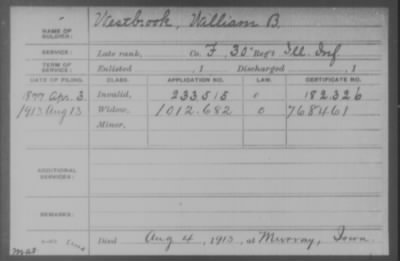 NAME OF SOLDIER: Westbrook, William B.
SERVICE: Late rank, Co. F, 30" Reg't Ill. Inf
TERM OF SERVICE: Enlisted , 1 Discharged , 1
DATE OF FILING. CLASS. APPLICATION NO. LAW. CERTIFICATE NO.
1877 Apr. 3 Invalid, 233,515 0 182,326
1913 Aug 13 Widow, 1012.682 0 768461
Minor,
ADDITIONAL SERVICES:
REMARKS:
Died Aug 4, 1913, at Murray, Iowa.